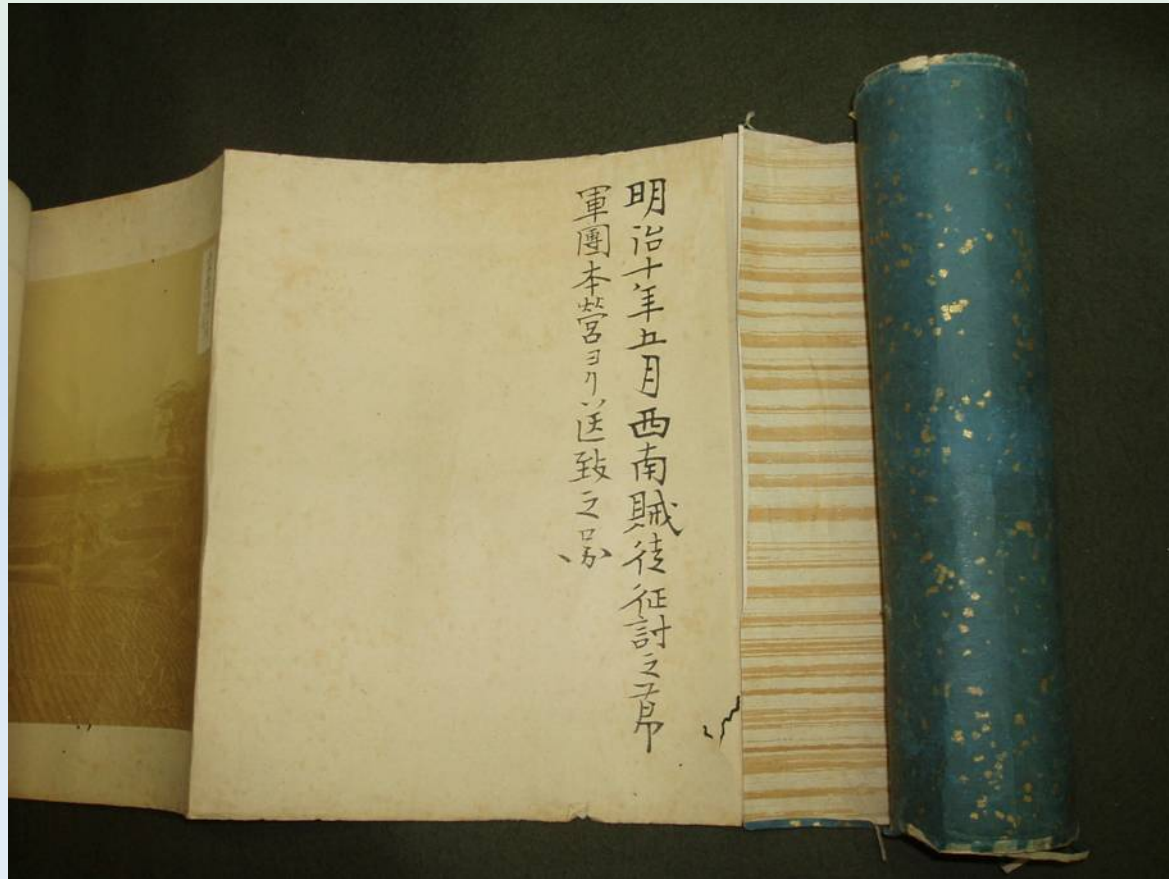 明治十年五月西南賊徒征討之節
軍團本営ヨリ送致之